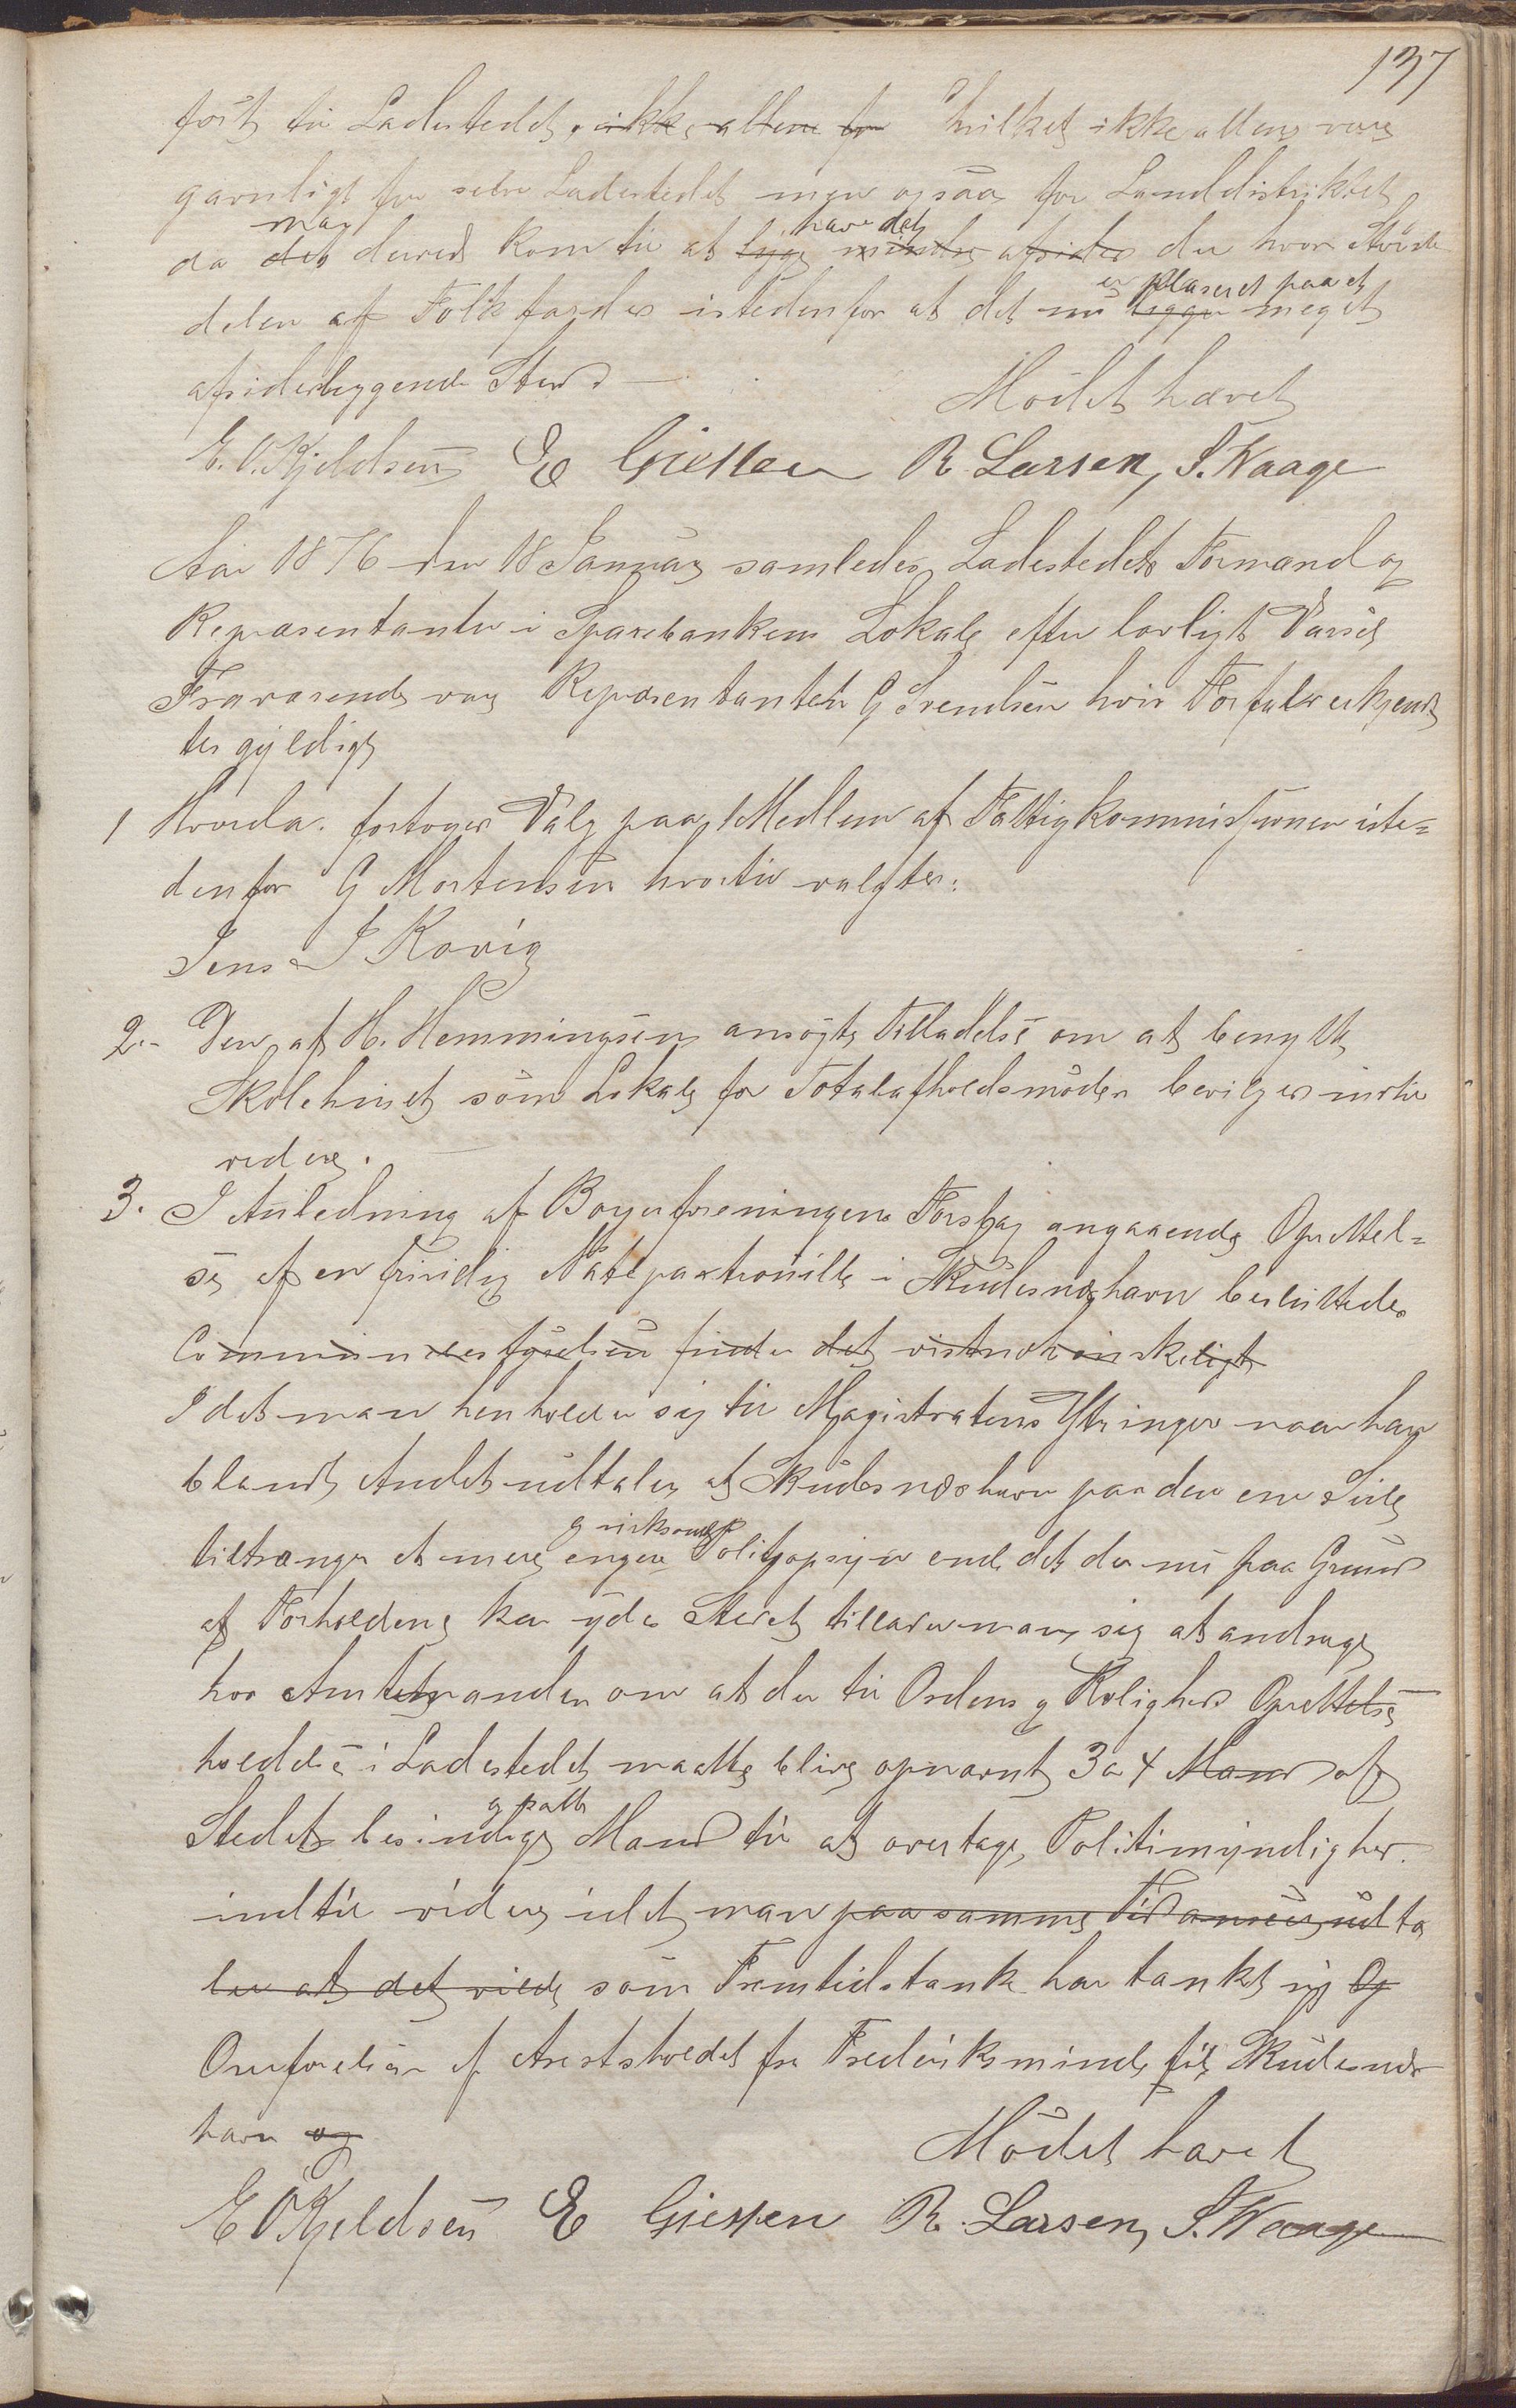 137
ført til Ladestedet, ikke allene for hvilket ikke allene være
gavnligt for selve Ladestedet men ogsaa for Landdistriktet
man have det
da det derved kom til at ligge mindre afsides der hvor Største
er plaseret paa et
delen af Folk færdes istedenfor at det nu ligger meget
afsidesliggende Sted
Mødet hævet
E. O. Kjeldsen E Giessen R. Larsen, S. Waage
Aar 1876 den 18 Januar samledes Ladestedets Formænd og
Repræsentanter i Sparebankens Lokale efter lovligt Varsel
Fraværende var Repræsentanten G Svendsen hvis Forfald erkjend
tes gyldigt
1 Hvorda. foretoges Valg paa 1 Medlem af Fattigkommissionen iste=
denfor G Mortensen hvortil valgtes:
Jens J Kovig
2.- Den af H. Hemmingsen ansøgte Tilladelse om at benytte
Skolehuset som Lokale for Totalafholdsmøder beviliges indtil
videre.
3. I Anledning af Borgerforeningens Forslag angaaende Oprettel=
se af en frivillig Natepartrouille i Skudesneshavn besluttedes
Communebestyrelsen finder det vistnok ønskeligt
I det man henholder sig til Magistratens Ytringer naar han
blandt Andet udtaler at Skudesneshavn paa den ene Side
g virksomt
tiltrænger et mere engere Politiopsyn end det der nu paa Grund
af Forholdene kan ydes Stedet tillader man sig at andrage
hos Amtmanden om at der til Ordens og Roligheds Oprettelse
holdelse i Ladestedet maatte blive opnævnt 3 a 4 Mand af
g satte
Stedets besindige Mænd til at overtage Politimyndighed.
indtil videre idet man paa samme Tid ansees udta
ler at det vilde som Fremtidstanke har tænkt sig Og
Overførelsen af Arestsholdet fra Frederiksminde til Skudesnes
havn og
Mødet hævet
E O Kjeldsen E Giessen R. Larsen, S. Waage